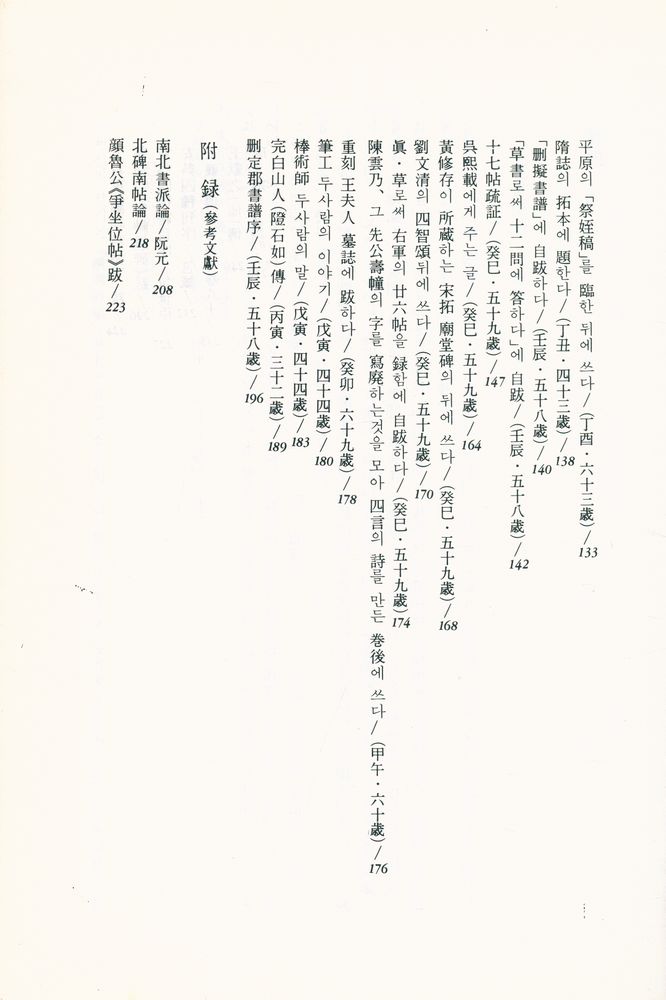 平原의「祭姪稿」를 臨한 뒤에 쓰다/(丁酉·六十三歲)/133
隋誌의 拓本에 題한다/(丁丑·四十三歲)/138
「删擬書譜」에 自跋하다/(壬辰·五十八歲)/140
「草書로써 十二問에 答하다」에 自跋/(壬辰·五十八歲)/142
十七帖疏証/(癸巳·五十九歲)/147
吳熙載에게 주는 글/(癸巳·五十九歲)/164
黃修存이 所蔵하는 宋拓 廟堂碑의 뒤에 쓰다/(癸巳·五十九歲)/168
劉文清의 四智頌뒤에 쓰다/(癸巳·五十九歲)/170
眞·草로써 右軍의 廿六帖을 録함에 自跋하다/(癸巳·五十九歲)174
陳雲乃、그 先公壽幢의 字를 寫廃하는것을 모아 四言의 詩를 만든 巻後에 쓰다/(甲午·六十歲)/176
重刻 王夫人 墓誌에 跋하다/(癸卯·六十九歲)/178
筆工 두사람의 이야기/(戊寅·四十四歲)/180
棒術師 두사람의 말/(戊寅·四十四歲)/183
完白山人(隥石如)傳/(丙寅·三十二歲)/189
删定郡書譜序/(壬辰·五十八歲)/196
附 録(參考文獻)
南北書派論/阮元/208
北碑南帖論/218
顔魯公《爭坐位帖》跋/223